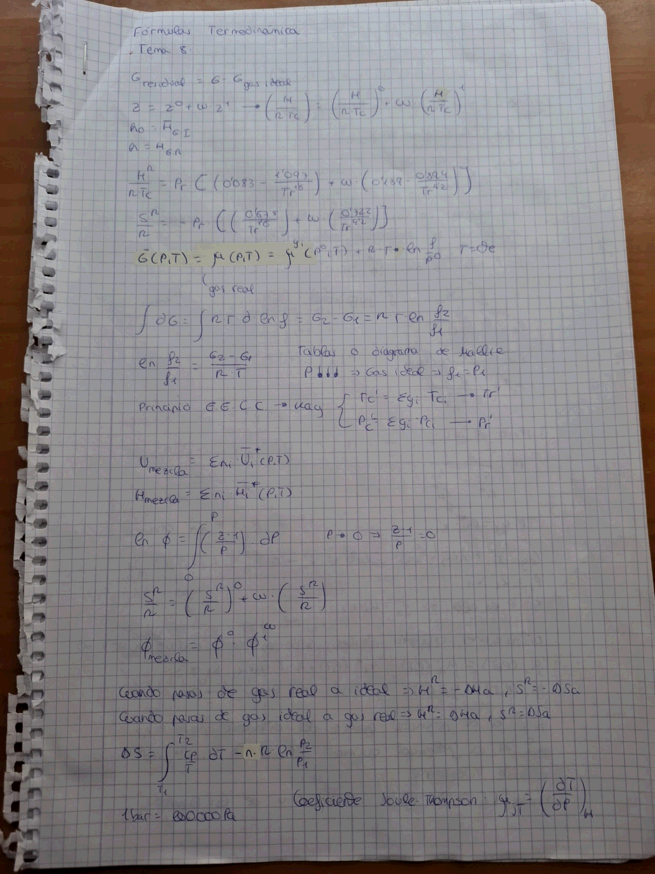 Fórmulas Termodinámica
. Tema 8
G residual = G - G gas ideal
z = z⁰ + ω z¹ → (H/RTc) = (H/RTc)⁰ + ω (H/RTc)¹
h₀ = H̄ G I
h = H G R
Hᴿ/RTc = Pr ((0'083 - 1'097/Tr^1'6) + ω (0'139 - 0'894/Tr^4'2)]
Sᴿ/R = - Pr ((0'675/Tr^2'6) + ω (0'722/Tr^5'2)]
Ḡ(P,T) = μ(P,T) = μ^gi (P⁰,T) + R·T· ln f/P⁰ T=cte
(gas real
∫ dG = ∫ R T d ln f = G₂ - G₁ = R T ln f₂/f₁
ln f₂/f₁ = (G₂ - G₁)/(R T) Tablas o diagrama de
P↓↓↓ ⇒ Gas ideal ⇒ f₁ = P₁
Principio E E C C → Kay { Tc' = Σyi · Tci → Tr'
Pc' = Σyi · Pci → Pr'
U mezcla = Σni Ūi* (P,T)
H mezcla = Σni H̄i* (P,T)
ln ϕ = ∫₀ᴾ ((z-1)/P) dP P→0 ⇒ (z-1)/P = 0
Sᴿ/R = (Sᴿ/R)⁰ + ω · (Sᴿ/R)
ϕ mezcla = ϕ⁰ · ϕ¹^ω
Cuando pasas de gas real a ideal ⇒ Hᴿ = -ΔHa, Sᴿ = -ΔSa
Cuando pasas de gas ideal a gas real ⇒ Hᴿ = ΔHa, Sᴿ = ΔSa
ΔS = ∫_T₁^T₂ Cp/T dT - n · R ln P₂/P₁
1 bar = 100000 Pa Coeficiente Joule Thompson: μ_JT = (∂T/∂P)_H